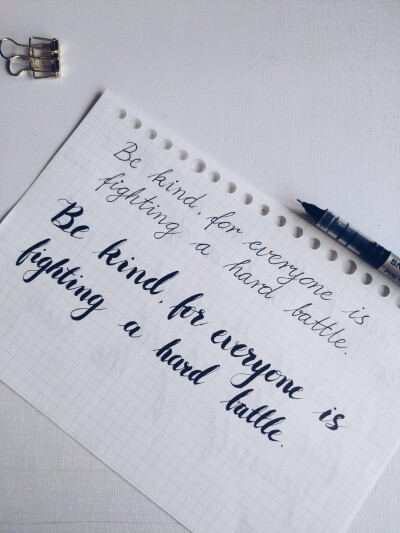 Be kind, for everyone is
fighting a hard battle.
Be kind, for everyone is
fighting a hard battle.